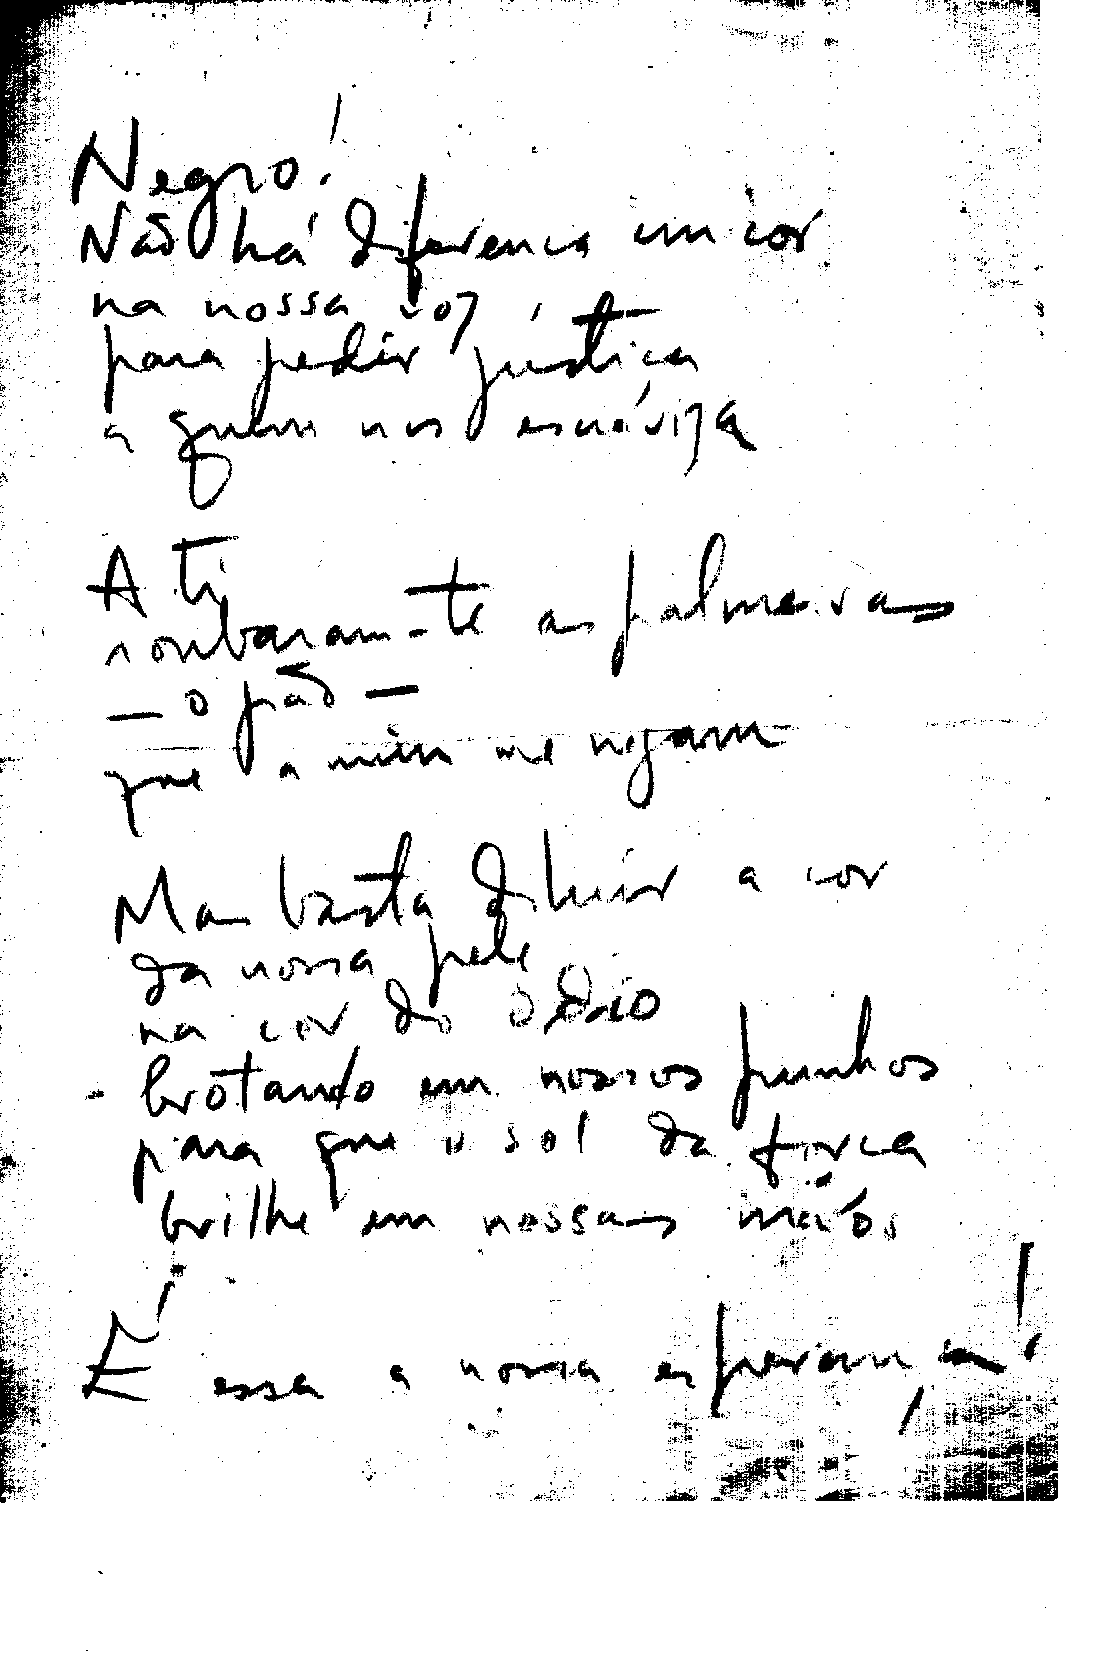 Negro!
Não há diferença em cor
na nossa voz
para pedir justiça
a quem nos escráviza
A ti
roubaram-te as palmeiras
— o pão —
que a mim me negam
Mas basta diluir a cor
da nossa pele
na cor do ódio
- brotando em nossos punhos
para que o sol da força
brilhe em nossas mãos
É essa a nossa esperança!